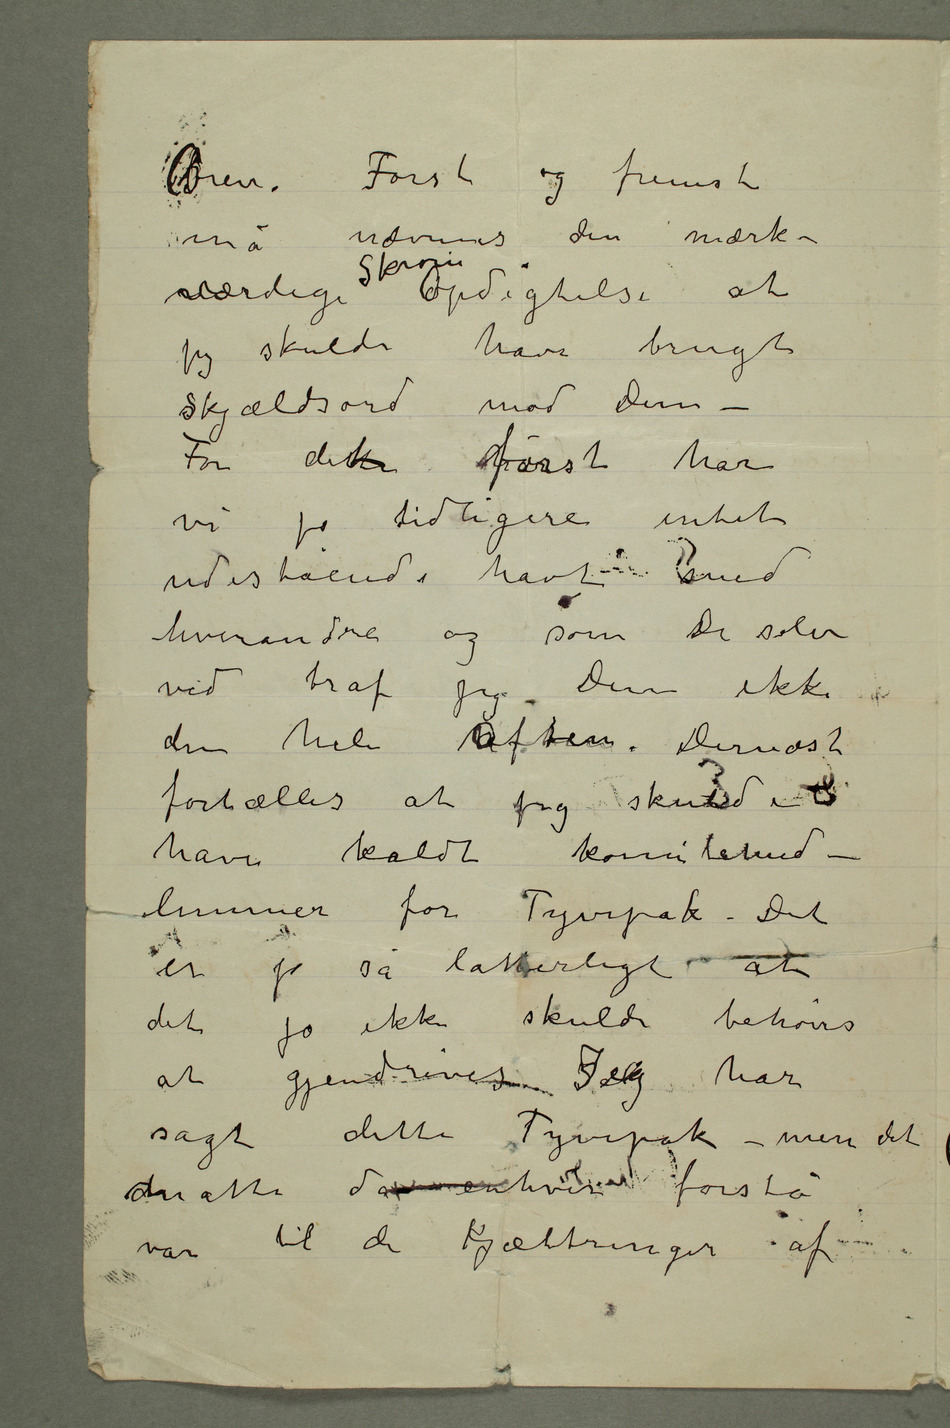 Brev. Først og fremst
må nævnes den mærk-
værdige Skrøne Opdigtelse at
jeg skulde have brugt
Skjældsord mod Dem –
For det først har
vi jo tidligere intet
udestående havt med
hverandre og som De selv
ved traf jeg Dem ikke
den hele Aften. Dernæst
fortælles at jeg skulde
have kaldt komitemed-
lemmer for Tyvepak – Det
er jo så latterligt at
det jo ikke skulde behøves
at gjendrives. Jeg har
sagt dette Tyvepak – men det
måtte da enhver forstå
var til de Kjæltringer af